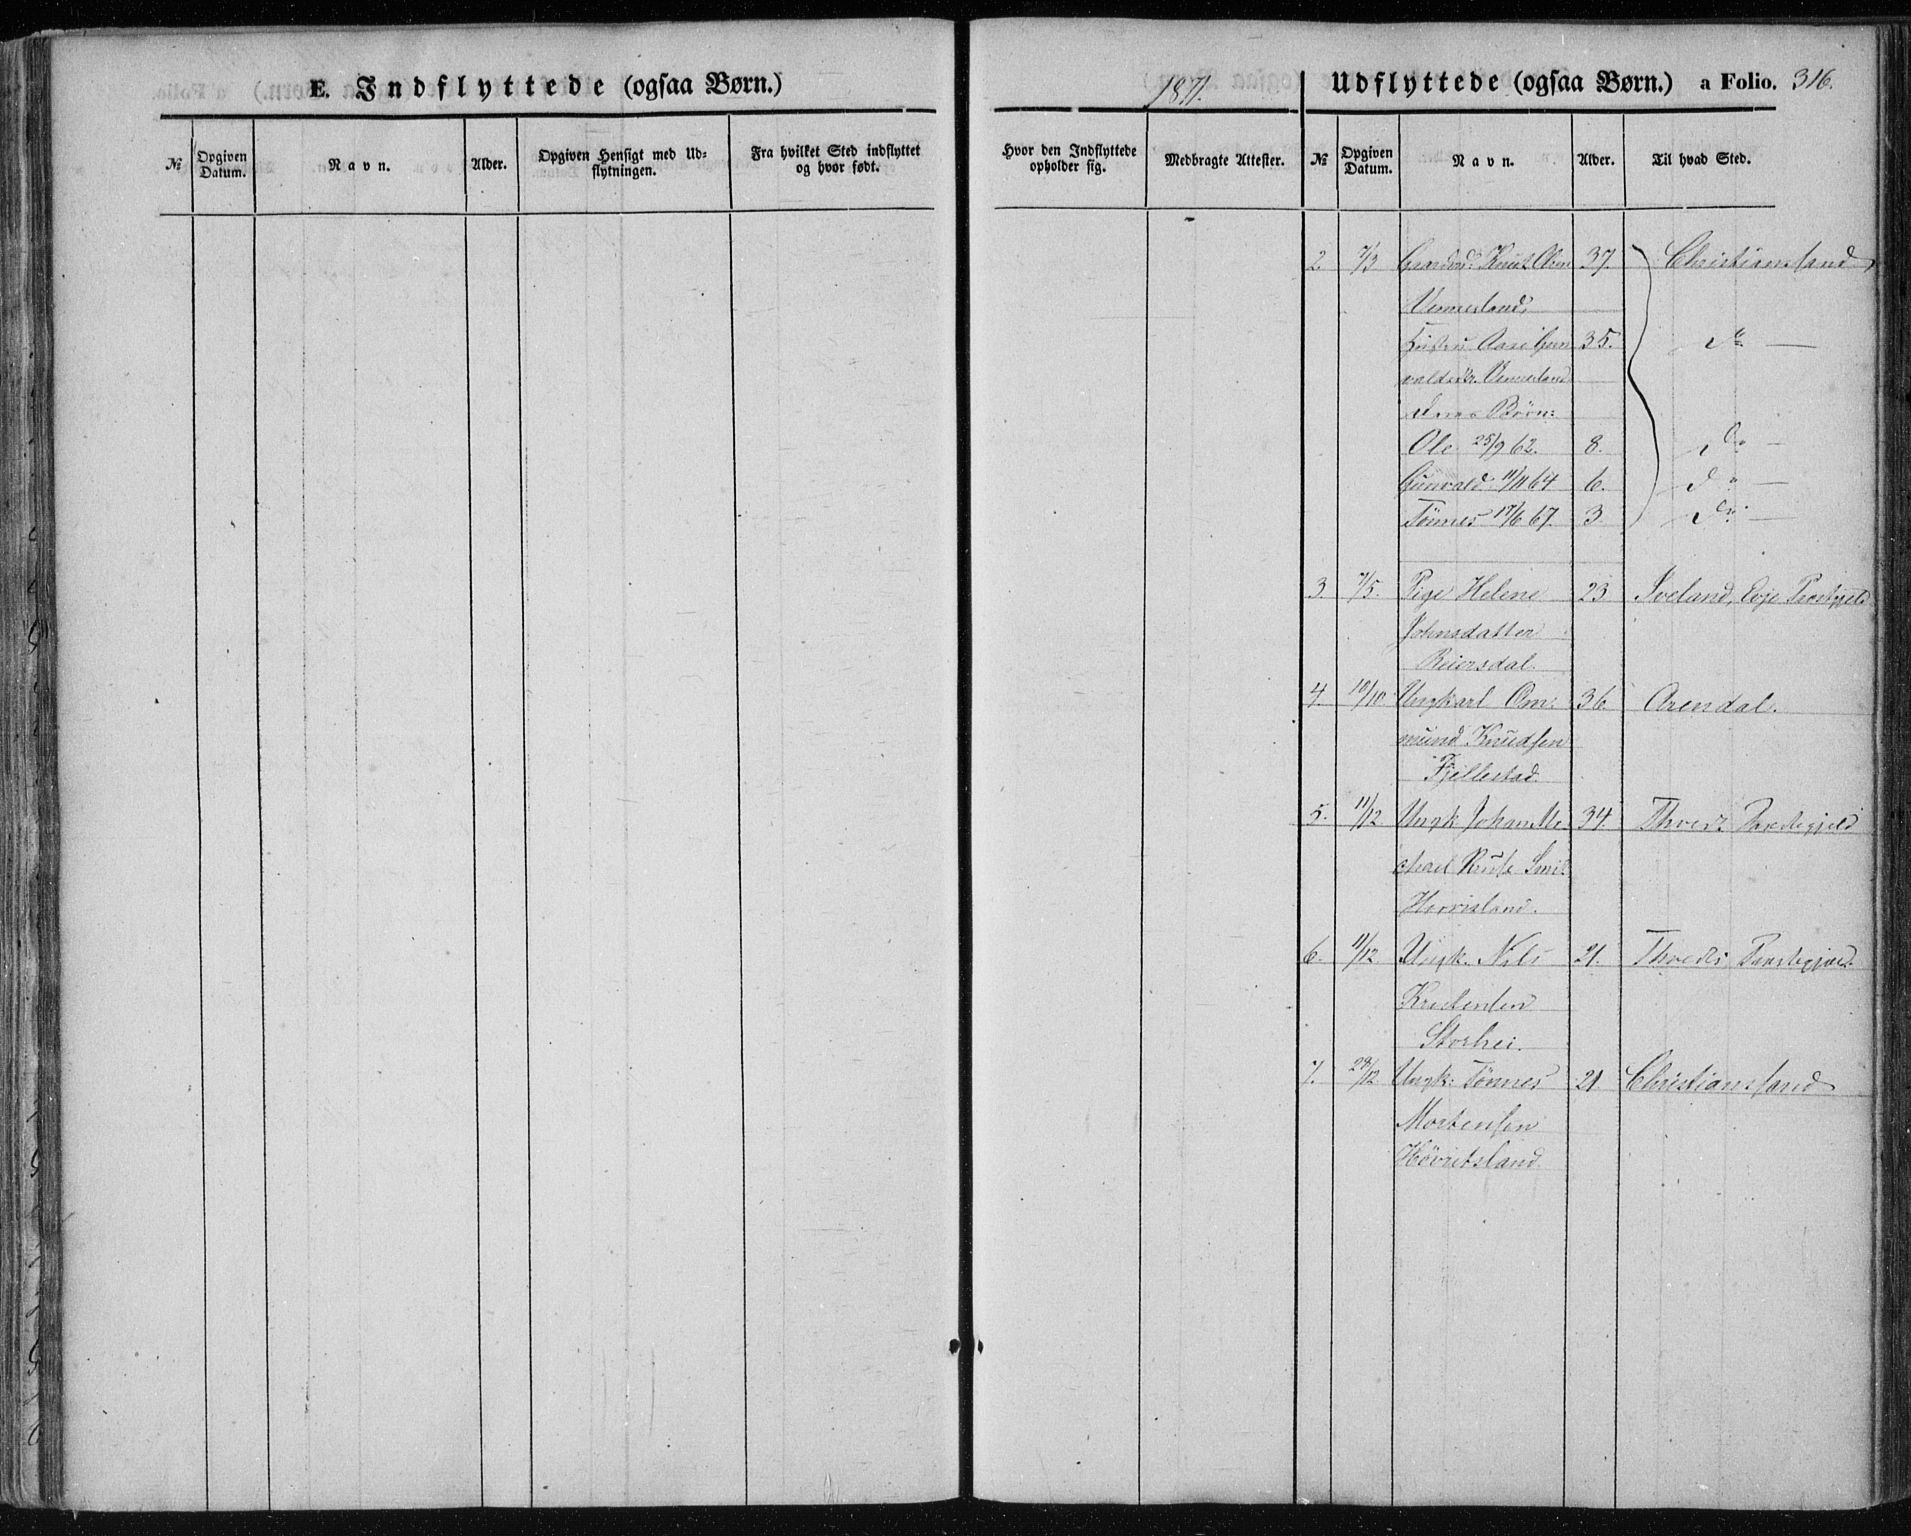 E. Indflyttede (ogsaa Børn.)
1871.
Udflyttede (ogsaa Børn.) a Folio. 316.
№
Opgiven Datum.
Navn.
Alder.
Opgiven Hensigt med Ud-
flytningen.
Fra hvilket Sted indflyttet
og hvor født.
Hvor den Indflyttede
opholder sig.
Medbragte Attester.
№
Opgiven Datum.
Navn.
Alder.
Til hvad Sted.
2. 7/3 Knut Olsen 37. Christianssand
Vennesland,
Hustru Aase Gun 35. do
valdsdtr. Vennesland
Børn:
Ole 25/9 62. 8. do
Gunvald 11/11 64 6. do
Tönnes 17/6 67. 3. do
3 7/5. Pige Helene 23 Sveland, Evje Præstegjeld
Johnsdatter
Reiersdal.
4. 10/10. Ungkarl Om: 36. Arendal.
mund Knudsen
Fjellestad.
5. 11/12 Ungk Johan Mi 34. Præstegjeld
chael
6. 11/12. Ungk. Nils 21. Thveds Præstegjeld
Kristensen
Storhei.
7. 29/12 Ungk: Tönnes 21. Christianssand
Mortensen
Hövretsland.